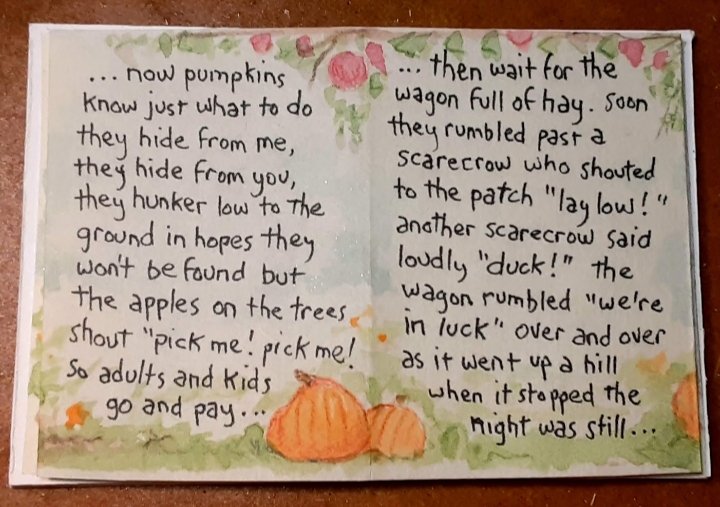 ... now pumpkins
know just what to do
they hide from me,
they hide from you,
they hunker low to the
ground in hopes they
won't be found but
the apples on the trees
shout "pick me! pick me!
So adults and kids
go and pay...
... then wait for the
wagon full of hay. Soon
they rumbled past a
scarecrow who shouted
to the patch "lay low!"
another scarecrow said
loudly "duck!" the
wagon rumbled "we're
in luck" over and over
as it went up a hill
when it stopped the
night was still...